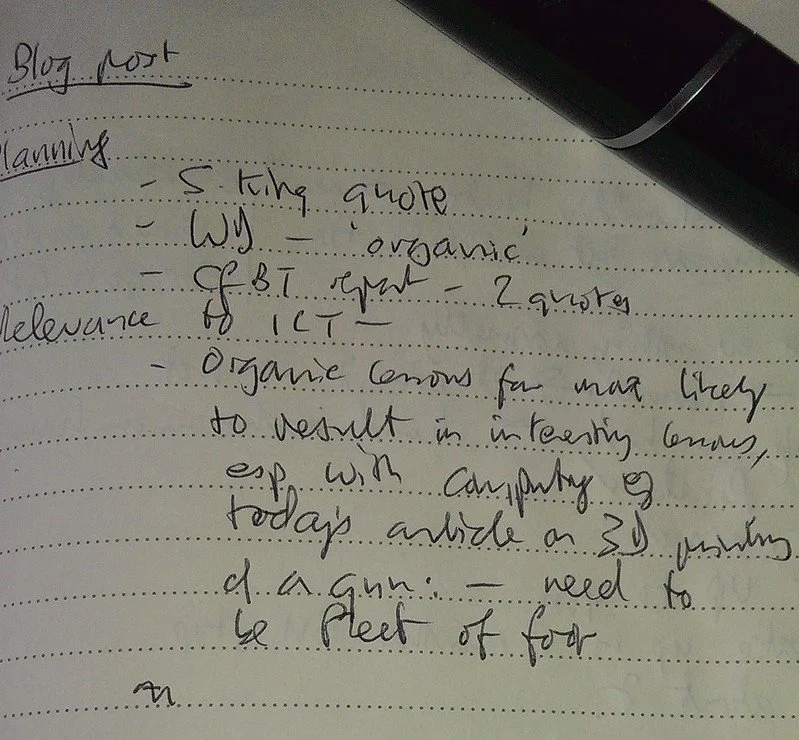 Blog post
Planning
- S. King quote
- WD - 'organic'
- CfBT report - 2 quotes
Relevance to ICT -
- Organic lessons far more likely
to result in interesting lessons,
esp. with computing eg
today's article on 3D printing
of a gun: - need to
be fleet of foot